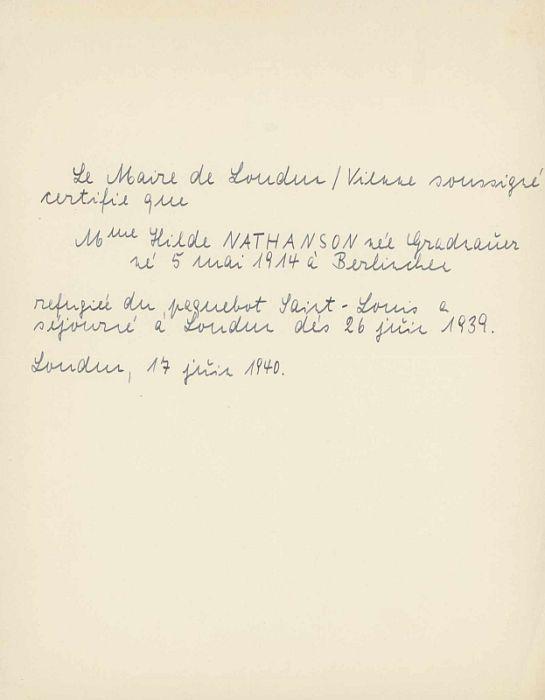 Le Maire de Loudun / Vienne soussigné
certifie que
Mme Hilde NATHANSON née Gradnauer
né 5 mai 1914 à
refugieé du paquebot Saint-Louis a
séjourné à Loudun dès 26 juin 1939.
Loudun, 17 juin 1940.